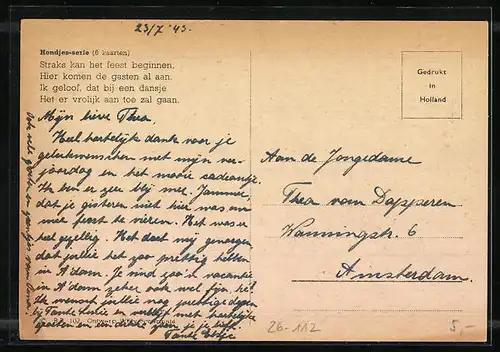 23/7 '43.
Hondjes-serie (6 kaarten)
Straks kan het feest beginnen,
Hier komen de gasten al aan.
Ik geloof, dat bij een dansje
Het er vrolijk aan toe zal gaan.
Gedrukt
in
Holland
Mijn lieve Thea.
Heel hartelijk dank voor je
gelukwenschen met mijn ver-
jaardag en het mooie cadeautje.
Ik ben er zeer blij mee. Jammer,
dat je gisteren niet hier was om
mee feest te vieren. Het was er
heel gezellig. Het doet mij genoegen
dat jullie het zoo prettig hebben
in A'dam. Je vind zoo'n vacantie
in A'dam zeker ook wel fijn, hè!
Ik wensch jullie nog prettige dagen
bij Tante en verblijf met hartelijke
groeten en een dikke zoen je je liefh.
Tante
Aan de Jongedame
Thea von Dapperen
Wanningstr. 6
Amsterdam.
26-112
5,-